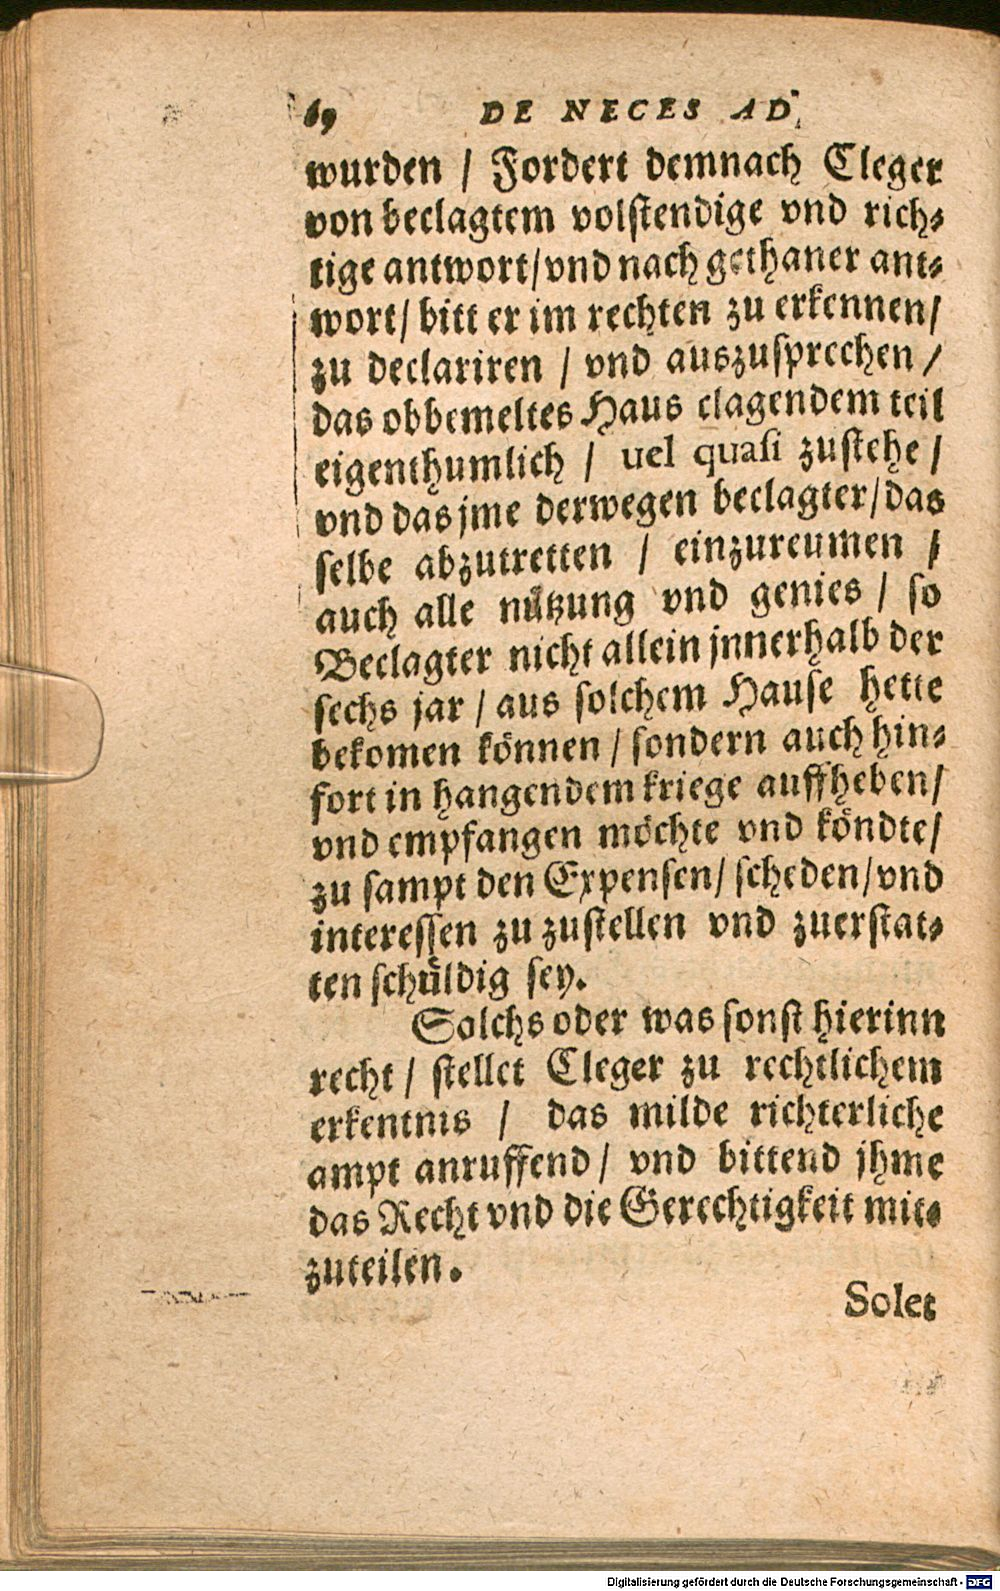 69 DE NECES AD
wurden / Fordert demnach Cleger
von beclagtem volstendige vnd rich⸗
tige antwort/vnd nach gethaner ant⸗
wort/ bitt er im rechten zu erkennen/
zu declariren / vnd auszusprechen /
das obbemeltes Haus clagendem teil
eigenthumlich / uel quasi zustehe /
vnd das jme derwegen beclagter/das
selbe abzutretten / einzureumen /
auch alle nützung vnd genies / so
Beclagter nicht allein jnnerhalb der
sechs jar / aus solchem Hause hette
bekomen können / sondern auch hin⸗
fort in hangendem kriege auffheben/
vnd empfangen möchte vnd köndte/
zu sampt den Expensen/ scheden/vnd
interessen zu zustellen vnd zuerstat⸗
ten schüldig sey.
Solchs oder was sonst hierinn
recht / stellet Cleger zu rechtlichem
erkentnis / das milde richterliche
ampt anruffend/ vnd bittend jhme
das Recht vnd die Gerechtigkeit mit⸗
zuteilen.
Solet
Digitalisierung gefördert durch die Deutsche Forschungsgemeinschaft - DFG